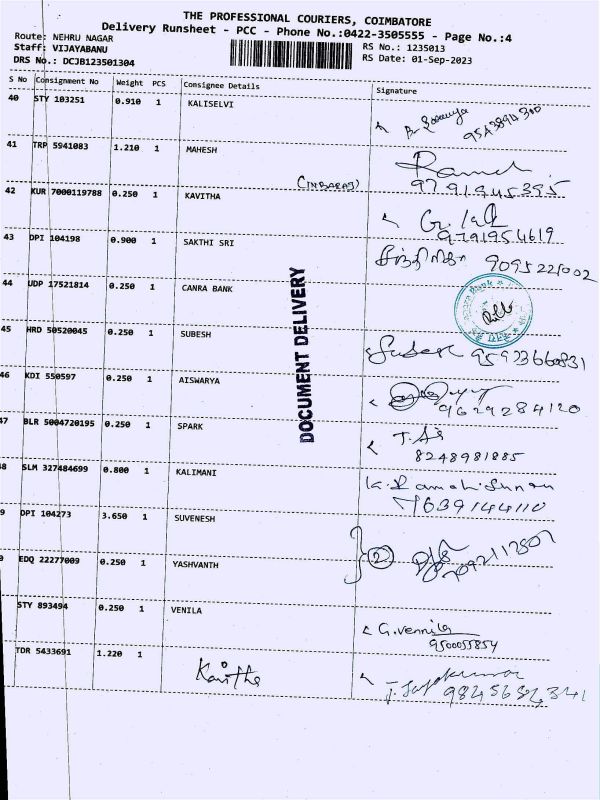 THE PROFESSIONAL COURIERS, COIMBATORE
Delivery Runsheet - PCC - Phone No.:0422-3505555 - Page No.:4
Route: NEHRU NAGAR
Staff: VIJAYABANU
DRS No.: DCJB123501304
RS No.: 1235013
RS Date: 01-Sep-2023
S No Consignment No Weight PCS Consignee Details Signature
40 STY 103251 0.910 1 KALISELVI
41 TRP 5941083 1.210 1 MAHESH
9791945395
42 KUR 7000119788 0.250 1 KAVITHA (INBARAJ)
9791954619
43 DPI 104198 0.900 1 SAKTHI SRI
9095221002
44 UDP 17521814 0.250 1 CANRA BANK
DOCUMENT DELIVERY
45 HRD 50520045 0.250 1 SUBESH
46 KDI 550597 0.250 1 AISWARYA
9629284120
47 BLR 5004720195 0.250 1 SPARK
8248981885
48 SLM 327484699 0.800 1 KALIMANI
9639144110
9 DPI 104273 3.650 1 SUVENESH
2
0 EDQ 22277009 0.250 1 YASHVANTH
STY 893494 0.250 1 VENILA
G.Vennila
9500055854
TDR 5433691 1.220 1
Kavitha
9845632341